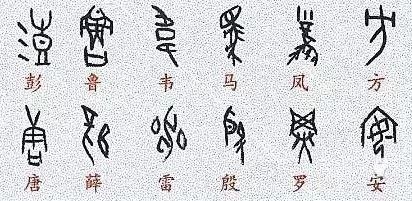 彭 鲁 韦 马 凤 方
唐 薛 雷 殷 罗 安